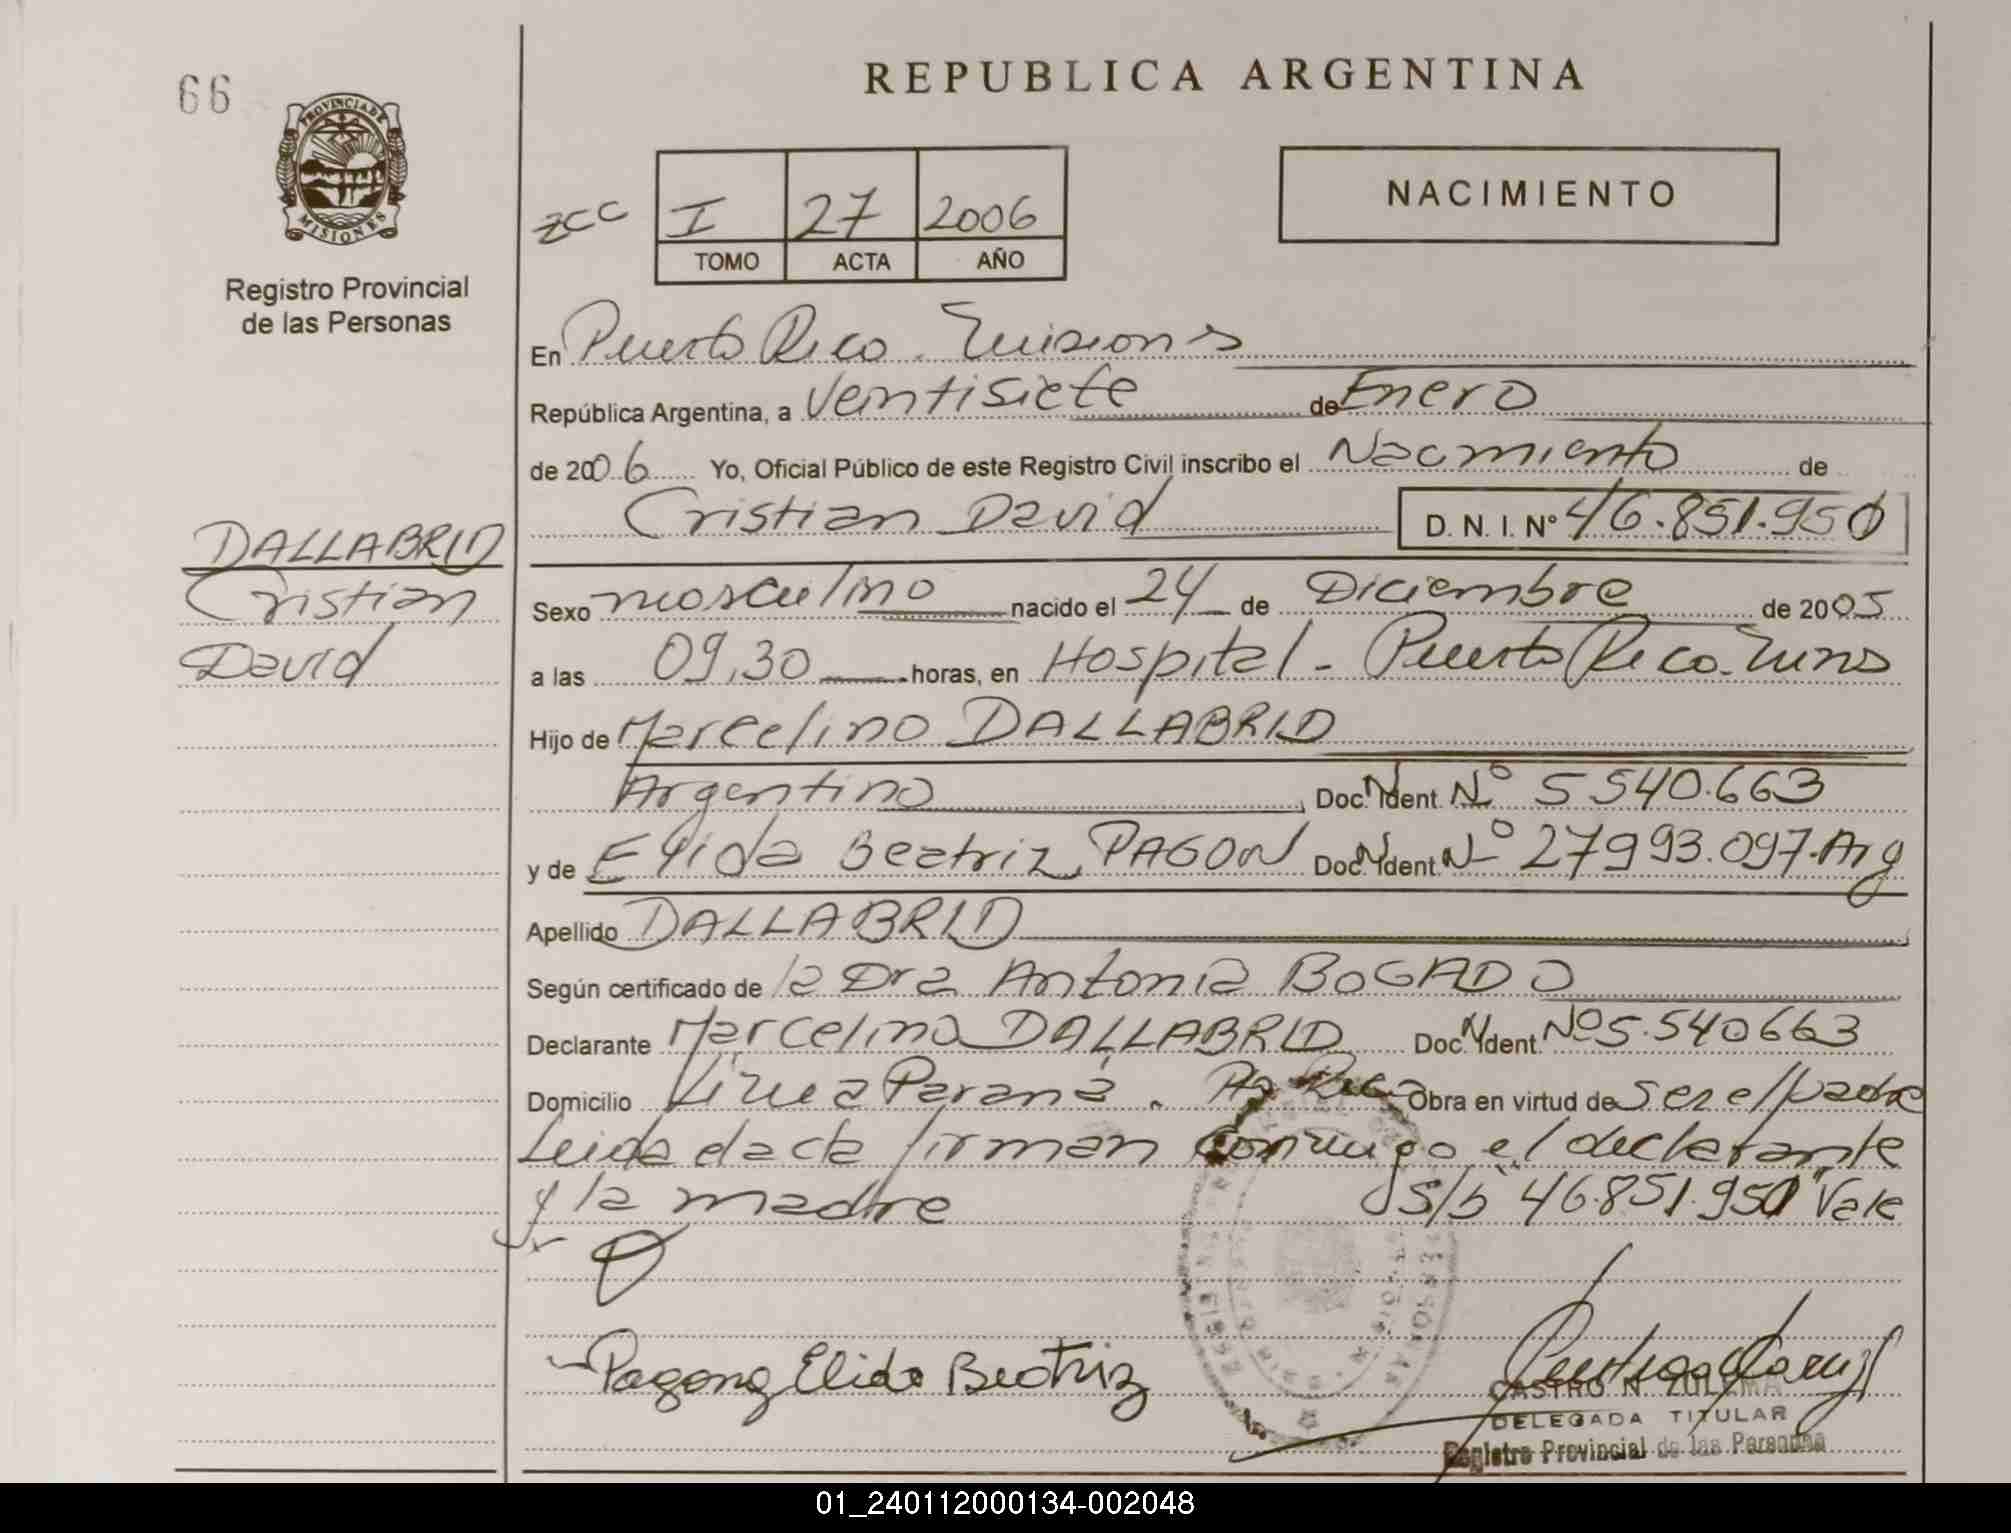 66
REPUBLICA ARGENTINA
PROVINCIA DE
MISIONES
Registro Provincial
de las Personas
ZCC I 27 2006
TOMO ACTA AÑO
NACIMIENTO
En Puerto Rico. Misiones
República Argentina, a Veintisiete de Enero
de 2006 Yo, Oficial Público de este Registro Civil inscribo el Nacimiento de
Cristian David D. N. I. Nº 46.851.950
DALLABRID
Cristian
David
Sexo masculino nacido el 24 de Diciembre de 2005
a las 09,30 horas, en Hospital - Puerto Rico. Mnes
Hijo de Marcelino DALLABRID
Argentino Doc. Ident. Nº 5540.663
y de Elida Beatriz PAGON Doc. Ident. Nº 27993.097. Arg
Apellido DALLABRID
Según certificado de la Dra Antonia BOGADO
Declarante Marcelino DALLABRID Doc. Ident. Nº 5.540663
Domicilio Línea Paraná. Pto Rico Obra en virtud de ser el padre
Leida el acta firman conmigo el declarante
y la madre S/b "46.851.950" Vale
Pagong Elida Beatriz
CASTRO N. ZULEMA
DELEGADA TITULAR
Registro Provincial de las Personas
01_240112000134-002048